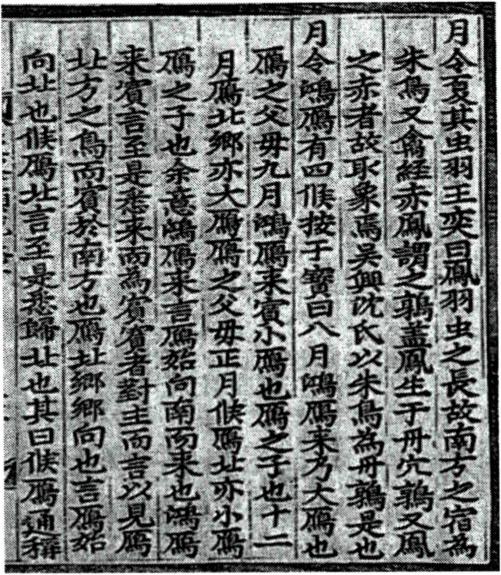 月令夏其虫羽王奕曰鳳羽虫之長故南方之宿為
朱鳥又禽經赤鳳謂之鶉蓋鳳生于丹穴鶉又鳳
之赤者故取象焉吴興沈氏以朱鳥為丹鶉是也
月令鴻鴈有四候按于寳曰八月鴻鴈来乃大鴈也
鴈之父毋九月鴻鴈来賓小鴈也鴈之子也十二
月鴈北鄉亦大鴈鴈之父毋正月候鴈北亦小鴈
鴈之子也余意鴻鴈来言鴈始向南而来也鴻鴈
来賓言至是悉来而為賓賓者對主而言以見鴈
北方之鳥而賓於南方也鴈北鄉鄉向也言鴈始
向北也候鴈北言至是悉歸北也其曰候鴈通稱